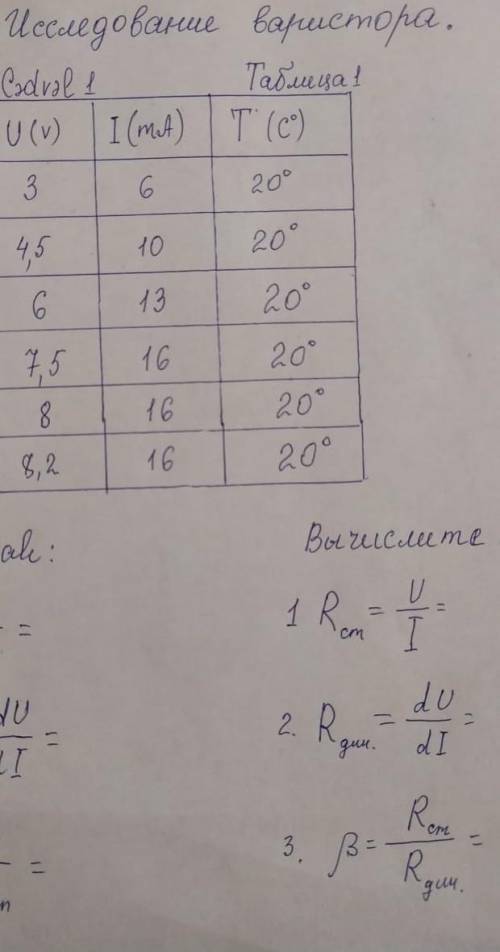 Исследование варистора.
Cədvəl 1 Таблица 1
U (v) I (mA) T (C°)
3 6 20°
4,5 10 20°
6 13 20°
7,5 16 20°
8 16 20°
8,2 16 20°
Вычислите
1 Rст = U/I =
2. Rдин. = dU/dI =
3. β = Rст/Rдин. =